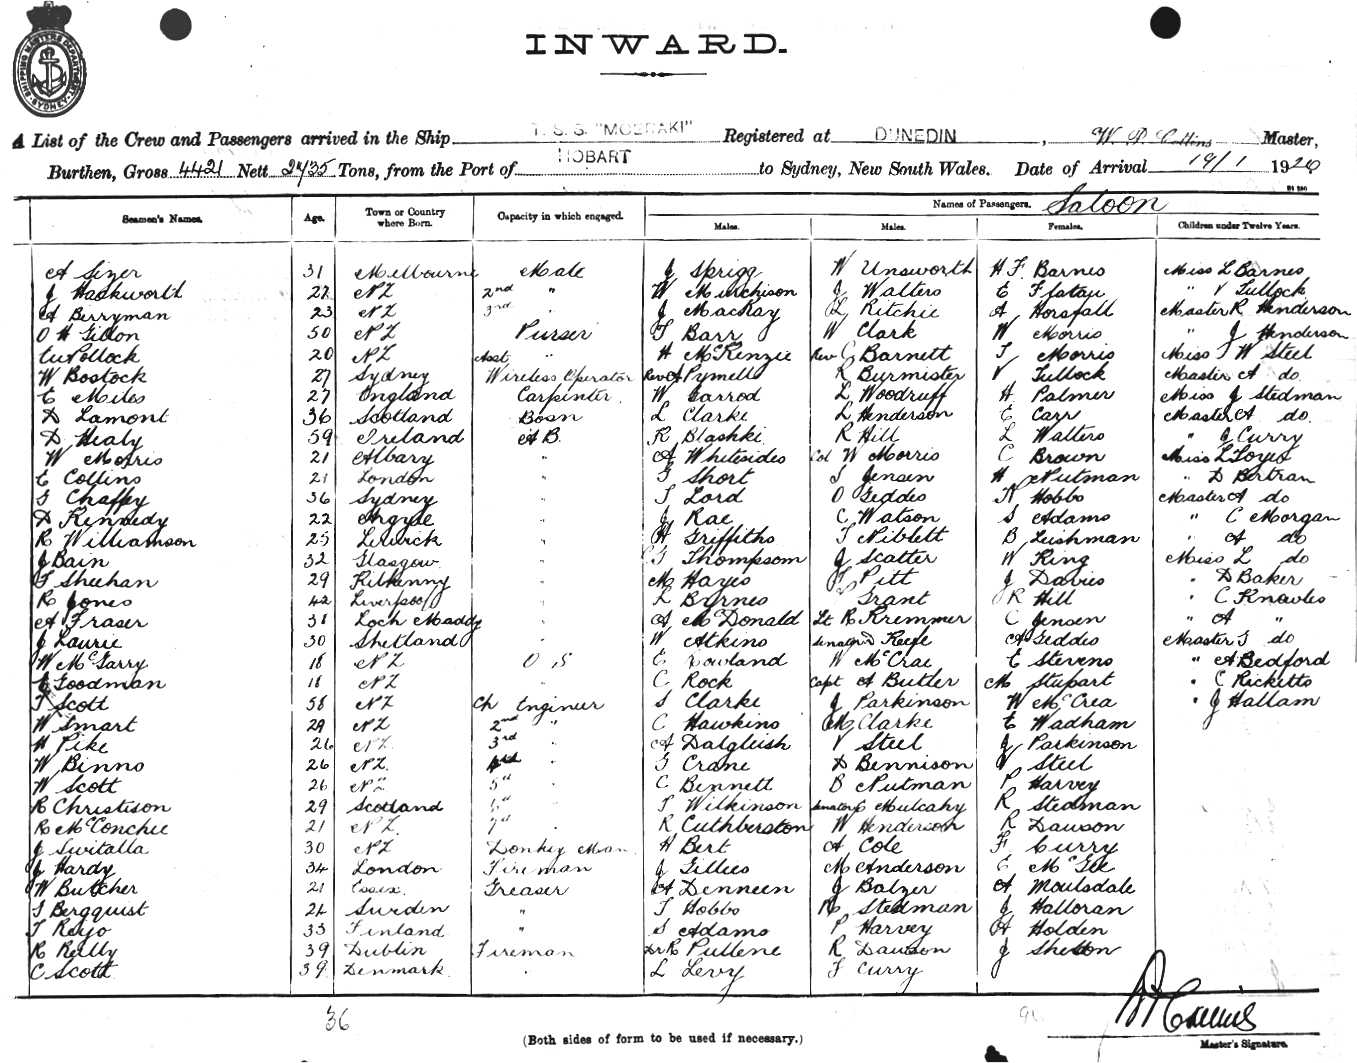 SHIPPING MASTERS DEPARTMENT SYDNEY
INWARD.
A List of the Crew and Passengers arrived in the Ship T. S. S. "MOERAKI" Registered at DUNEDIN, W. P. Collins Master,
Burthen, Gross 4421 Nett 2435 Tons, from the Port of HOBART to Sydney, New South Wales. Date of Arrival 19/1 1920
Seamen's Names. Age. Town or Country where Born. Capacity in which engaged. Names of Passengers. Saloon
Males. Males. Females. Children under Twelve Years.
A Sizer 31 Melbourne Mate J Sprigg W Unsworth H F. Barnes Miss L Barnes
J Hackworth 27 NZ 2nd " W Murchison J Walters E Flatau " V Tullock
A Berryman 23 NZ 3rd " J MacKay L Ritchie A Horsfall Master R Henderson
O H Gibbon 50 NZ Purser G Barr W Clark W Morris " J Henderson
Pollock 20 NZ Asst " H McKenzie Rev C Barnett T Morris Miss W Steel
W Bostock 27 Sydney Wireless Operator Rev A Pymell R Burmister V Tullock Master A do
E Miles 27 England Carpenter W Garrod L Woodruff H Palmer Miss J Stedman
D Lamont 36 Scotland Bosn L Clarke L Henderson E Carr Master A do.
D Healy 59 Ireland A B. R Blashki R Hill L Walters " J Curry
W Morris 21 Albary " A Whitesides Col W Morris C Brown Miss L Loyes
E Collins 21 London " G Short S Jensen H Nutman " D Bertran
G Chaffy 36 Sydney " T Lord O Geddes K Hobbs Master A do
D Kennedy 22 Argyle " J Rae C Watson S Adams " C Morgan
R Williamson 25 Lerwick " H Griffiths T Niblett B Leishman " A do
J Bain 32 Glasgow " G Thompson J Scatter W King Miss L do
T Sheehan 29 Kilkenny " M Hayes F Pitt J Davies " D Baker
R Jones 42 Liverpool " L Byrnes Grant R Hill " C Knowles
A Fraser 31 Loch Maddy " A McDonald Lt R Kremmer C Jensen " A "
J Laurie 30 Shetland " W Atkins Senator Keefe A Geddes Master G do
W McGarry 18 NZ O S E Rowland W McCrae E Stevens " A Bedford
E Goodman 18 NZ " C Rock Capt A Butler M Stupart " C Ricketts
T Scott 58 NZ Ch Engineer S Clarke J Parkinson W McCrea " J Hallam
W Smart 29 NZ 2nd " C Hawkins Clarke E Wadham
H Pike 26 NZ 3rd " A Dalgleish V Steel J Parkinson
W Binno 26 NZ 4th " G Crane D Bennison V Steel
W Scott 26 NZ 5th " C Bennett B Nutman P Harvey
R Christison 29 Scotland 6th " T Wilkinson Senator E Mulcahy R Stedman
R McConchie 21 NZ 7th " R Cuthberston W Henderson R Dawson
J Switalla 30 NZ Donkey Man H Bert A Cole F Curry
J Hardy 34 London Fireman J Gillies M Anderson E McGee
W Butcher 21 Essex Greaser A Denneen J Balzer A Moulsdale
T Bergquist 24 Sweden " T Hobbs R Stedman J Halloran
T Reijo 33 Finland " S Adams P Harvey A Holden
R Reilly 39 Dublin Fireman Dr R Pullene R Dawson J Shelton
C Scott 39 Denmark " L Levy F Curry
36
(Both sides of form to be used if necessary.)
W P Collins
Master's Signature.